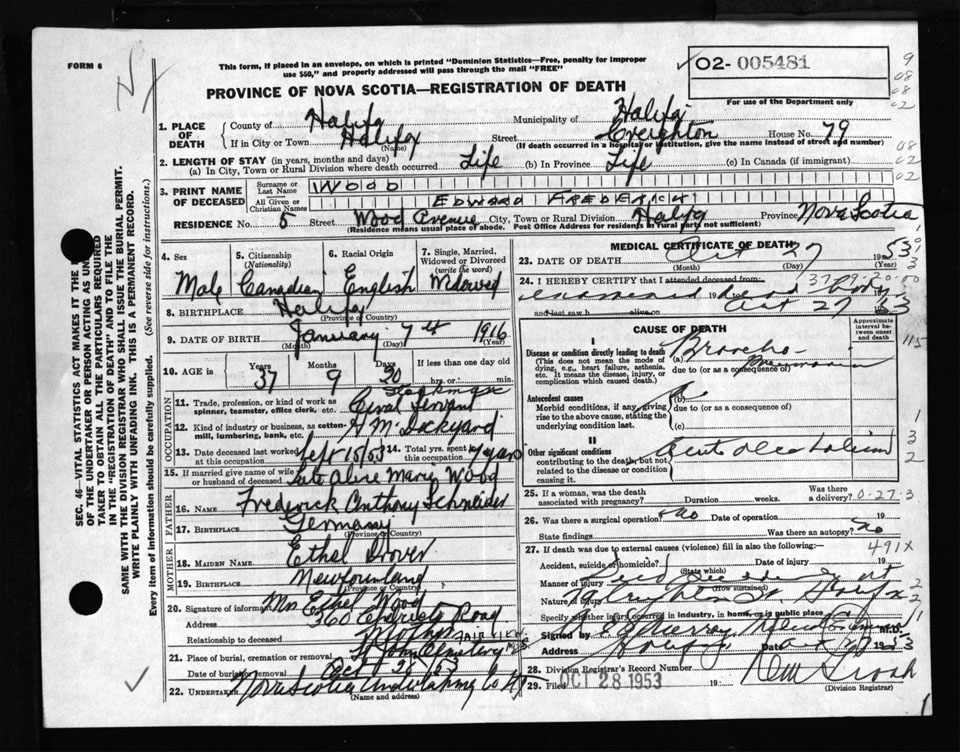 FORM 6
This form, if placed in an envelope, on which is printed "Dominion Statistics—Free, penalty for improper
use $50," and properly addressed will pass through the mail "FREE"
02-005481
For use of the Department only
9
08
08
02
08
02
02
PROVINCE OF NOVA SCOTIA—REGISTRATION OF DEATH
1. PLACE OF DEATH
County of Halifax Municipality of Halifax
If in City or Town Halifax Street Creighton House No. 79
(Name) (If death occurred in a hospital or institution, give name instead of street and number)
2. LENGTH OF STAY (in years, months and days)
(a) In City, Town or Rural Division where death occurred Life (b) In Province Life (c) In Canada (if immigrant)
3. PRINT NAME OF DECEASED
Surname or Last Name WOOD
All Given or Christian Names EDWARD FREDERICK
RESIDENCE No. 5 Street Wood Avenue City, Town or Rural Division Halifax Province Nova Scotia
(Residence means usual place of abode. Post Office Address for residents in rural parts not sufficient)
4. Sex Male
5. Citizenship (Nationality) Canadian
6. Racial Origin English
7. Single, Married, Widowed or Divorced (write the word) Widowed
8. BIRTHPLACE Halifax
(Province or Country)
9. DATE OF BIRTH January 7th 1916
(Month) (Day) (Year)
10. AGE in Years Months Days If less than one day old
37 9 20 hrs. or min.
OCCUPATION
11. Trade, profession, or kind of work as spinner, teamster, office clerk, etc. Civil Servant
12. Kind of industry or business, as cotton-mill, lumbering, bank, etc. H M Dockyard
13. Date deceased last worked at this occupation Sept 15/53
14. Total yrs. spent in this occupation years
15. If married give name of wife or husband of deceased Late Marie Wood
FATHER
16. Name Frederick Anthony Schneider
17. Birthplace Germany
(Province or Country)
MOTHER
18. MAIDEN NAME Ethel
19. BIRTHPLACE Newfoundland
(Province or Country)
20. Signature of informant Mrs Ethel Wood
Address 360 Road
Relationship to deceased Mother
21. Place of burial, cremation or removal FAIRVIEW Cemetery
Date of burial or removal Oct 53
22. UNDERTAKER Nova Scotia Undertaking Co
(Name and Address)
MEDICAL CERTIFICATE OF DEATH
23. DATE OF DEATH Oct 27 1953
(Month) (Day)
24. I HEREBY CERTIFY that I attended deceased from:
examined dead body
and last saw h alive on Oct 27 53
CAUSE OF DEATH
Approximate interval between onset and death
I
Disease or condition directly leading to death
(a) Broncho Pneumonia
This does not mean the mode of dying, e.g., heart failure, asthenia, etc. It means the disease, injury, or complication which caused death.)
due to (or as a consequence of)
Antecedent causes
Morbid conditions, if any, giving rise to the above cause, stating the underlying condition last.
(b)
due to (or as a consequence of)
(c)
II
Other significant conditions
contributing to the death, but not related to the disease or condition causing it.
Acute alcoholism
25. If a woman, was the death associated with pregnancy? Duration weeks. Was there a delivery? 0-27-3
26. Was there a surgical operation? No Date of operation
State findings Was there an autopsy? No
27. If death was due to external causes (violence) fill in also the following:— 491X
Accident, suicide or homicide? Date of injury 19
(State which)
Manner of injury
(How sustained)
Nature of injury
Specify whether injury occurred in industry, in home, or in public place
Signed by
Address Date Oct 53
28. Division Registrar's Record Number
29. Filed OCT 28 1953 19
(Division Registrar)
SEC. 46—VITAL STATISTICS ACT MAKES IT THE
OF THE UNDERTAKER OR PERSON ACTING AS UN
TAKER TO OBTAIN ALL THE PARTICULARS REQUIRED
IN THE "REGISTRATION OF DEATH" AND TO FILE THE
SAME WITH THE DIVISION REGISTRAR WHO SHALL ISSUE THE BURIAL PERMIT.
WRITE PLAINLY WITH UNFADING INK. THIS IS A PERMANENT RECORD.
Every item of information should be carefully supplied. (See reverse side for instructions.)